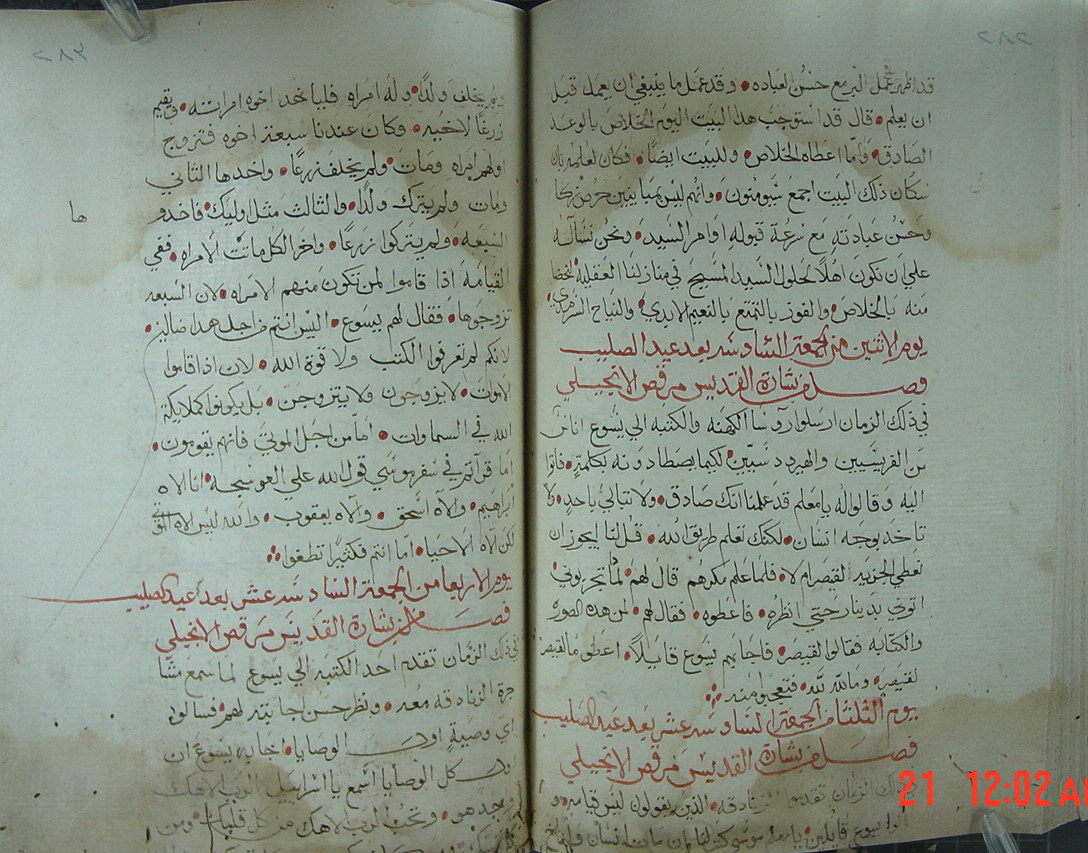 ٢٨٢
قد اظهر عمل البر مع حسن العباده • وقد عمل ما ينبغي ان يعمل قبل
ان يعلم • قال قد استوجب هذا البيت اليوم الخلاص بالوعد
الصادق • واما اعطاه الخلاص • وللبيت ايضًا • فكان لعلمه بان
سكان ذلك البيت اجمع سيومنون • وانهم ليس بمباينين
وحسن عبادته مع سرعة قبوله اوامر السيد • ونحن نساله
علي ان نكون اهلًا لحلول السيد المسيح في منازلنا العقلية
منه بالخلاص • والفوز بالتمتع بالنعيم الابدي • والنياح السرمدي
يوم الاثنين من الجمعة السادسة بعد عيد الصليب
فصل من بشارة القديس مرقص الانجيلي
في ذلك الزمان ارسلوا روسا الكهنه والكتبه الي يسوع اناس
من الفريسيين والهيردوسيين • لكيما يصطادونه بكلمة • فاتوا
اليه وقالوا له يا معلم قد علمنا انك صادق • ولا تبالي باحد • ولا
تاخد بوجه انسان • لكنك تعلم طريق الله • قل لنا ايجوز ان
نعطي الجزيه لقيصر ام لا • فلما علم مكرهم قال لهم • لما تجربوني
اتوني بدينار حتي انظره • فاعطوه • فقال لهم • لمن هده الصوره
والكتابه فقالوا لقيصر • فاجابهم يسوع قايلًا • اعطوا ما لقيصر
لقيصر • وما لله لله • فتعجبوا منه
يوم الثلثا من الجمعة السادسة عشر بعد عيد الصليب
فصل من بشارة القديس مرقص الانجيلي
ذلك الزمان تقدموا الزنادقه • الذين يقولون ليس قيامه • و
يسوع قايلين • يا معلم موسي كتب لنا ان مات انسان
٢٨٣
ولم يخلف ولدًا • وله امراه فلياخد اخوه امراته • ويقيم
زرعًا لاخيه • وكان عندنا سبعة اخوه فتزوج
اولهم امراه ومات • ولم يخلف زرعًا • واخدها الثاني
ومات ولم يترك ولدًا • والثالث مثل اوليك • فاخدو
ها
السبعه • ولم يتركوا زرعًا • واخر الكل ماتت الامراه • ففي
القيامه اذا قاموا لمن تكون منهم الامراه • لان السبعه
تزوجوها • فقال لهم يسوع • اليس انتم من اجل هدا ضالين •
لانكم لم تعرفوا الكتب ولا قوة الله • لان اذا قاموا
الاموات • لا يزوجون ولا يتزوجن • بل يكونوا كملايكة
الله في السماوات • اما من اجل الموتي فانهم يقومون •
اما قراتم في سفر موسي قول الله علي العوسجه • انا الاه
ابراهيم • والاه اسحق • والاه يعقوب • والله ليس الاه الموتي
لكن الاه الاحيا • اما انتم فكثيرًا تطغوا
يوم الاربعا من الجمعة السادسة عشر بعد عيد الصليب
فصل من بشارة القديس مرقص الانجيلي
في ذلك الزمان تقدم احد الكتبه الي يسوع لما سمع مشا
جرة الزنادقه معه • ونظر حسن اجابته لهم فساله
اي وصيةٍ اولي الوصايا • اجابه يسوع ان
اول كل الوصايا اسمع يا اسراييل الرب الاهك
وحده هو • وتحب الرب الاهك من كل قلبك • ومن
21 12:02 A